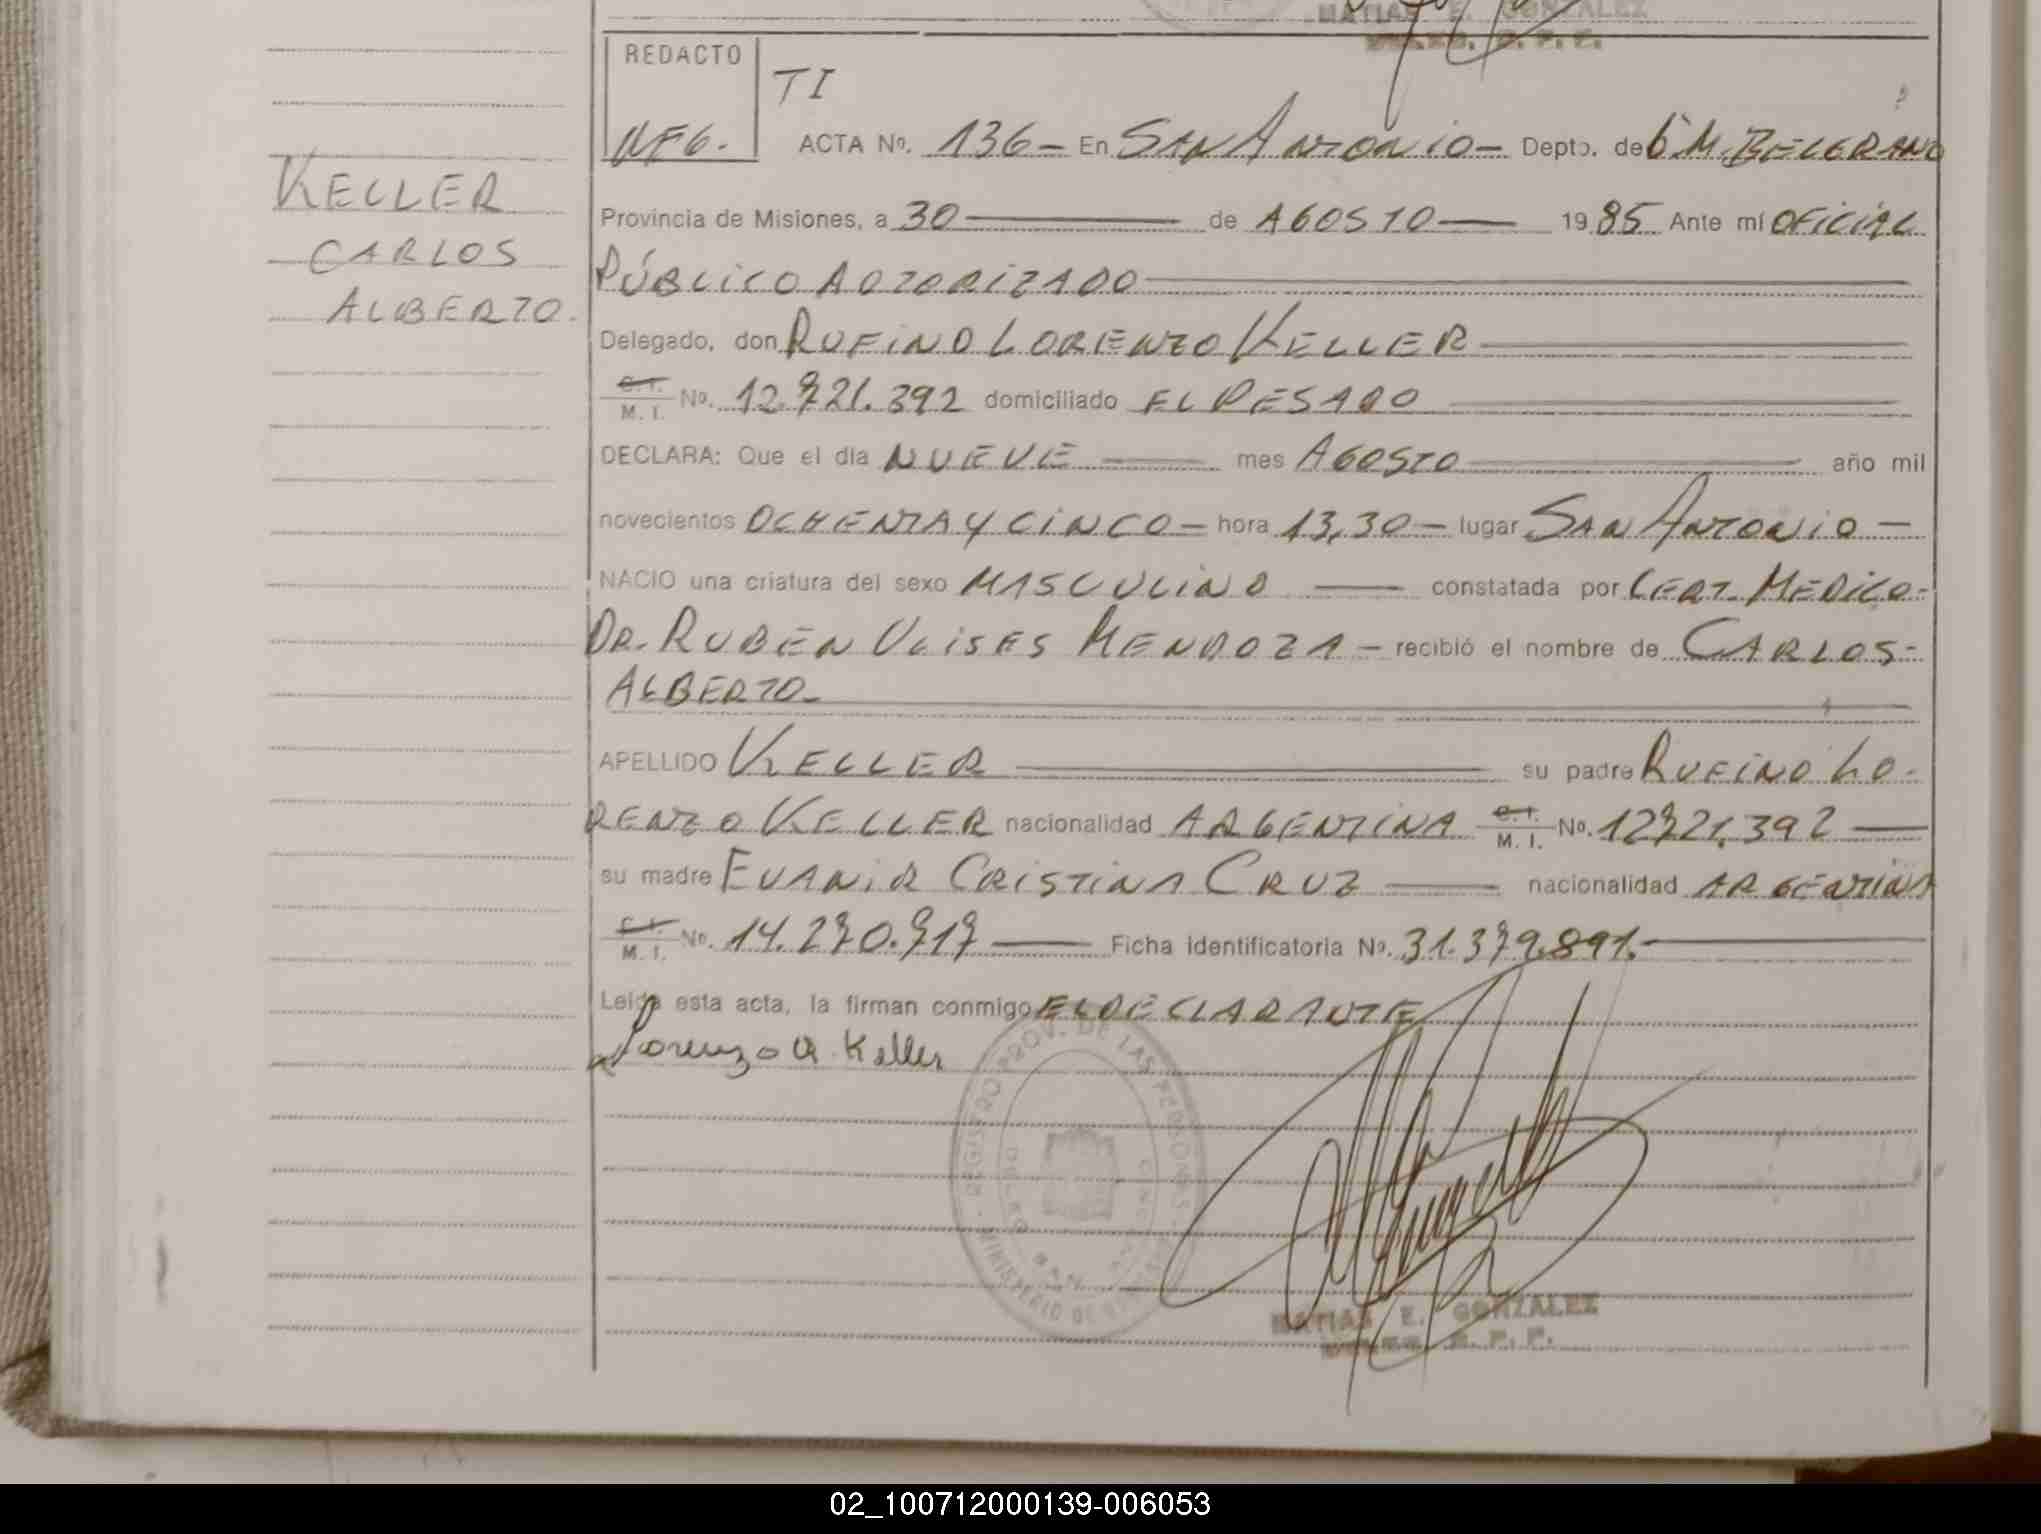 MATIAS E. GONZALEZ
REDACTO
TI
NF6.
ACTA Nº. 136 - En SAN ANTONIO - Depto. de G.M. BELGRANO
Provincia de Misiones, a 30 de AGOSTO 1985 Ante mí OFICIAL
PÚBLICO AUTORIZADO
Delegado, don RUFINO LORENZO KELLER
C.I. M. I. Nº. 12.721.392 domiciliado EL PESADO
DECLARA: Que el día NUEVE mes AGOSTO año mil
novecientos OCHENTA Y CINCO - hora 13,30 - lugar SAN ANTONIO -
NACIO una criatura del sexo MASCULINO constatada por CERT. MEDICO-
DR. RUBEN ULISES MENDOZA - recibió el nombre de CARLOS-
ALBERTO-
APELLIDO KELLER su padre RUFINO LO-
RENZO KELLER nacionalidad ARGENTINA C.I. M. I. Nº. 12721.392
su madre EVANIR CRISTINA CRUZ nacionalidad ARGENTINA
C.I. M. I. Nº. 14.270.717 Ficha identificatoria Nº. 31.379.891.-
Leída esta acta, la firman conmigo EL DECLARANTE
Lorenzo R. Keller
KELLER
CARLOS
ALBERTO.
REGISTRO PROV. DE LAS PERSONAS
MINISTERIO DE
MATIAS E. GONZALEZ
02_100712000139-006053